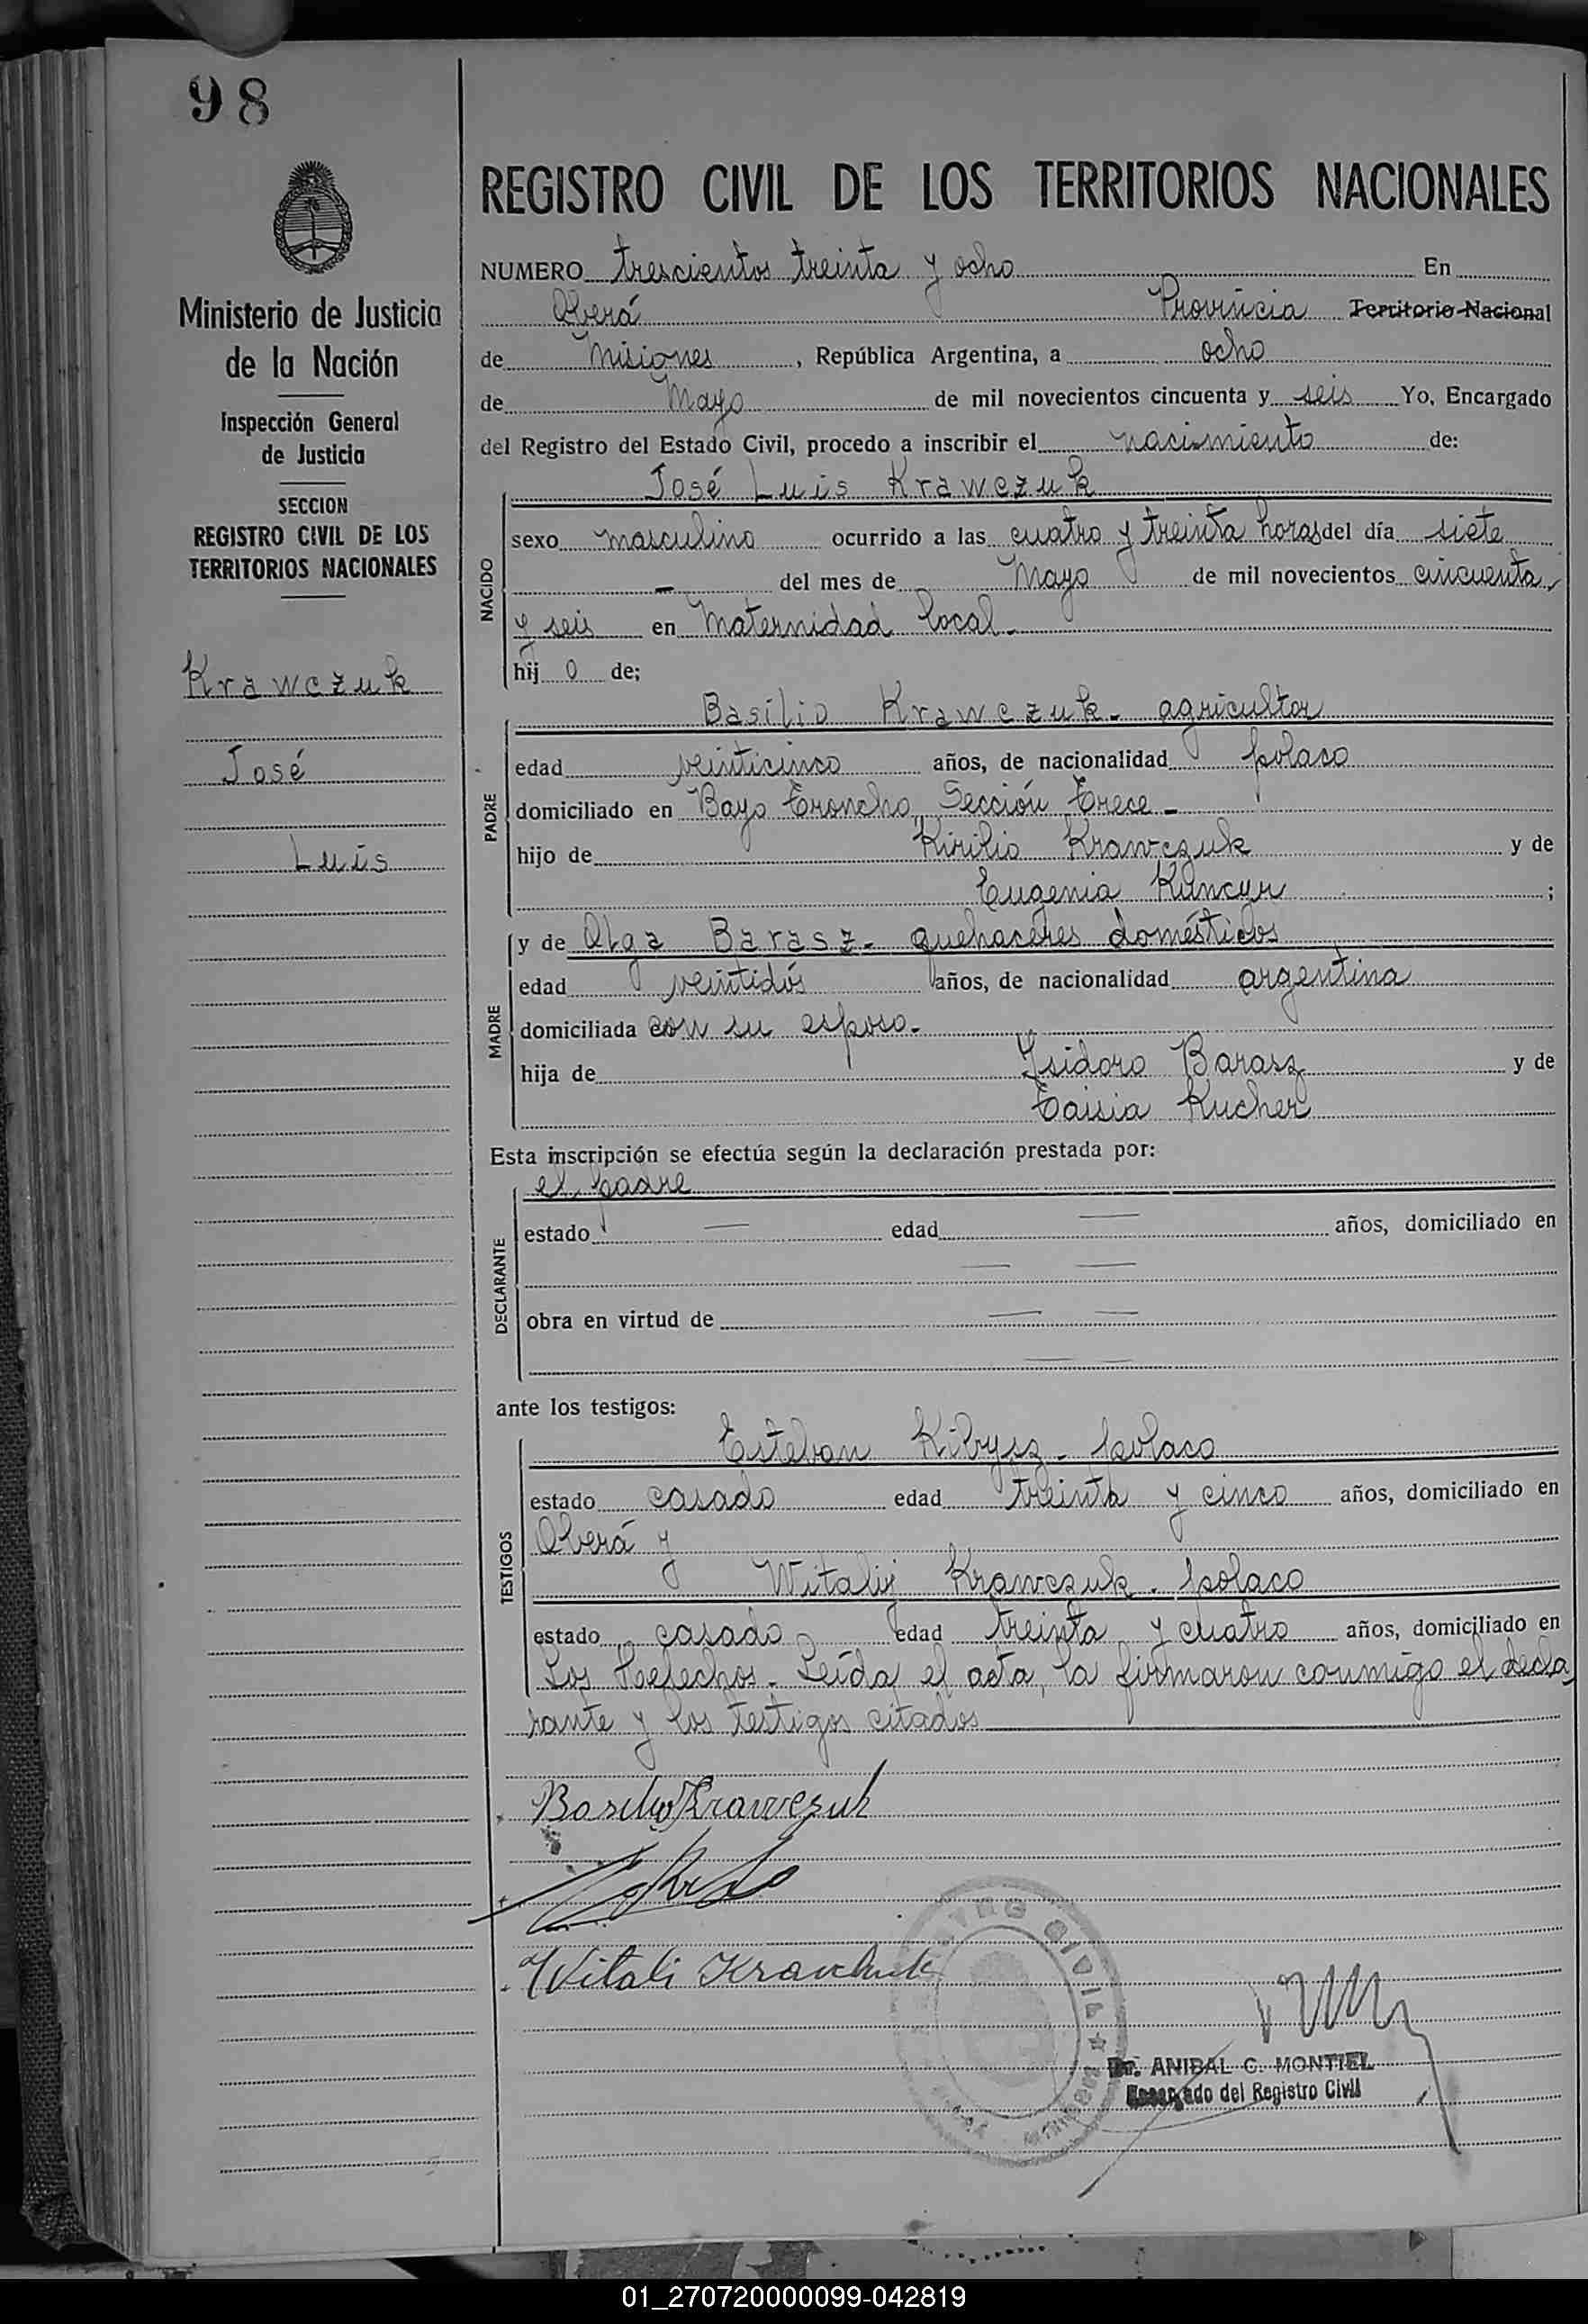 98
Ministerio de Justicia
de la Nación
Inspección General
de Justicia
SECCION
REGISTRO CIVIL DE LOS
TERRITORIOS NACIONALES
Krawczuk
José
Luis
REGISTRO CIVIL DE LOS TERRITORIOS NACIONALES
NUMERO trescientos treinta y ocho En
Oberá Provincia Territorio Nacional
de Misiones, República Argentina, a ocho
de Mayo de mil novecientos cincuenta y seis Yo, Encargado
del Registro del Estado Civil, procedo a inscribir el nacimiento de:
José Luis Krawczuk
NACIDO
sexo masculino ocurrido a las cuatro y treinta horas del día siete
— del mes de Mayo de mil novecientos cincuenta
y seis en Maternidad local.
hijo de;
Basilio Krawczuk - agricultor
PADRE
edad veinticinco años, de nacionalidad polaco
domiciliado en Bayo Troncho, Sección Trece -
hijo de Kirilio Krawczuk y de
Eugenia ;
y de Olga Barasz - quehaceres domésticos
MADRE
edad veintidós años, de nacionalidad argentina
domiciliada con su esposo.
hija de Isidoro Barasz y de
Taisia Kucher
Esta inscripción se efectúa según la declaración prestada por:
el padre
DECLARANTE
estado — edad — años, domiciliado en
— —
obra en virtud de — —
— —
ante los testigos:
Esteban - polaco
TESTIGOS
estado casado edad treinta y cinco años, domiciliado en
Oberá y
Witalij Krawczuk - polaco
estado casado edad treinta y cuatro años, domiciliado en
Los Helechos - Leída el acta, la firmaron conmigo el decla
rante y los testigos citados
Basilio Krawczuk
Witali Kravchuk
REGISTRO CIVIL
Dr. ANIBAL C. MONTIEL
Encargado del Registro Civil
01_270720000099-042819